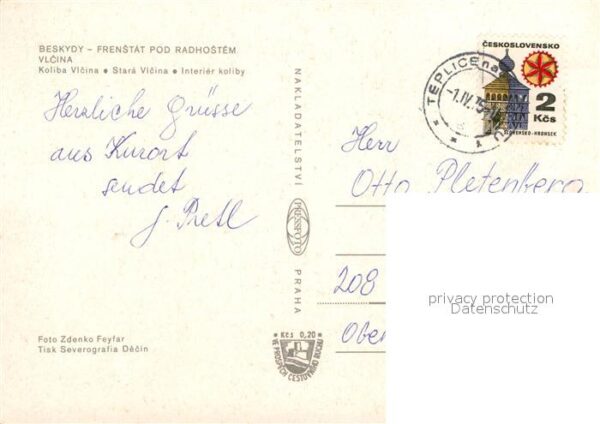 BESKYDY – FRENŠTÁT POD RADHOŠTĚM
VLČINA
Koliba Vlčina • Stará Vlčina • Interiér koliby
Herzliche Grüsse
aus Kurort
sendet
J. Pretl
Foto Zdenko Feyfar
Tisk Severografia Děčín
NAKLADATELSTVÍ
PRESSFOTO
PRAHA
Kčs 0,20
VE PROSPĚCH CESTOVNÍHO RUCHU
TEPLICE na
-1.IV.75
ČESKOSLOVENSKO
2
Kčs
SLOVENSKO-HRONSEK
Herr
Otto Pletenberg
208
Ober
privacy protection
Datenschutz